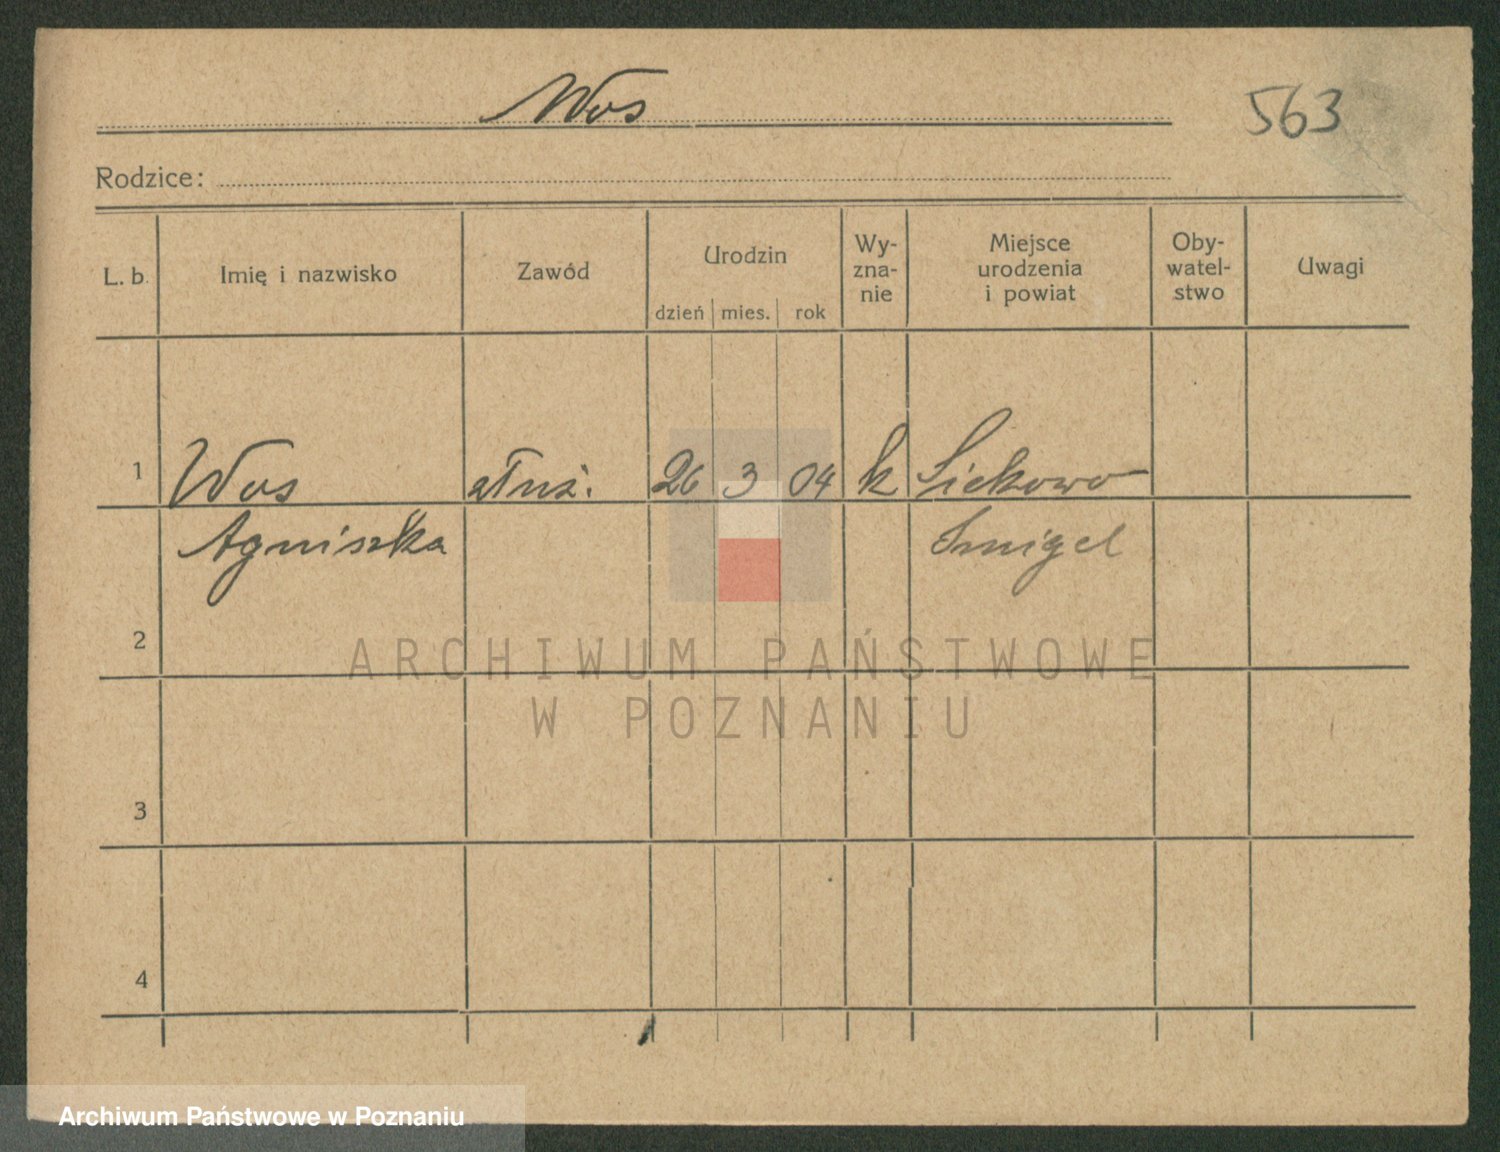 Wos
563
Rodzice:
L. b. Imię i nazwisko Zawód Urodzin dzień mies. rok Wy- zna- nie Miejsce urodzenia i powiat Oby- watel- stwo Uwagi
1 Wos służ. 26 3 04 k Siekowo
Agniszka Smigel
2
ARCHIWUM PAŃSTWOWE
W POZNANIU
3
4
Archiwum Państwowe w Poznaniu